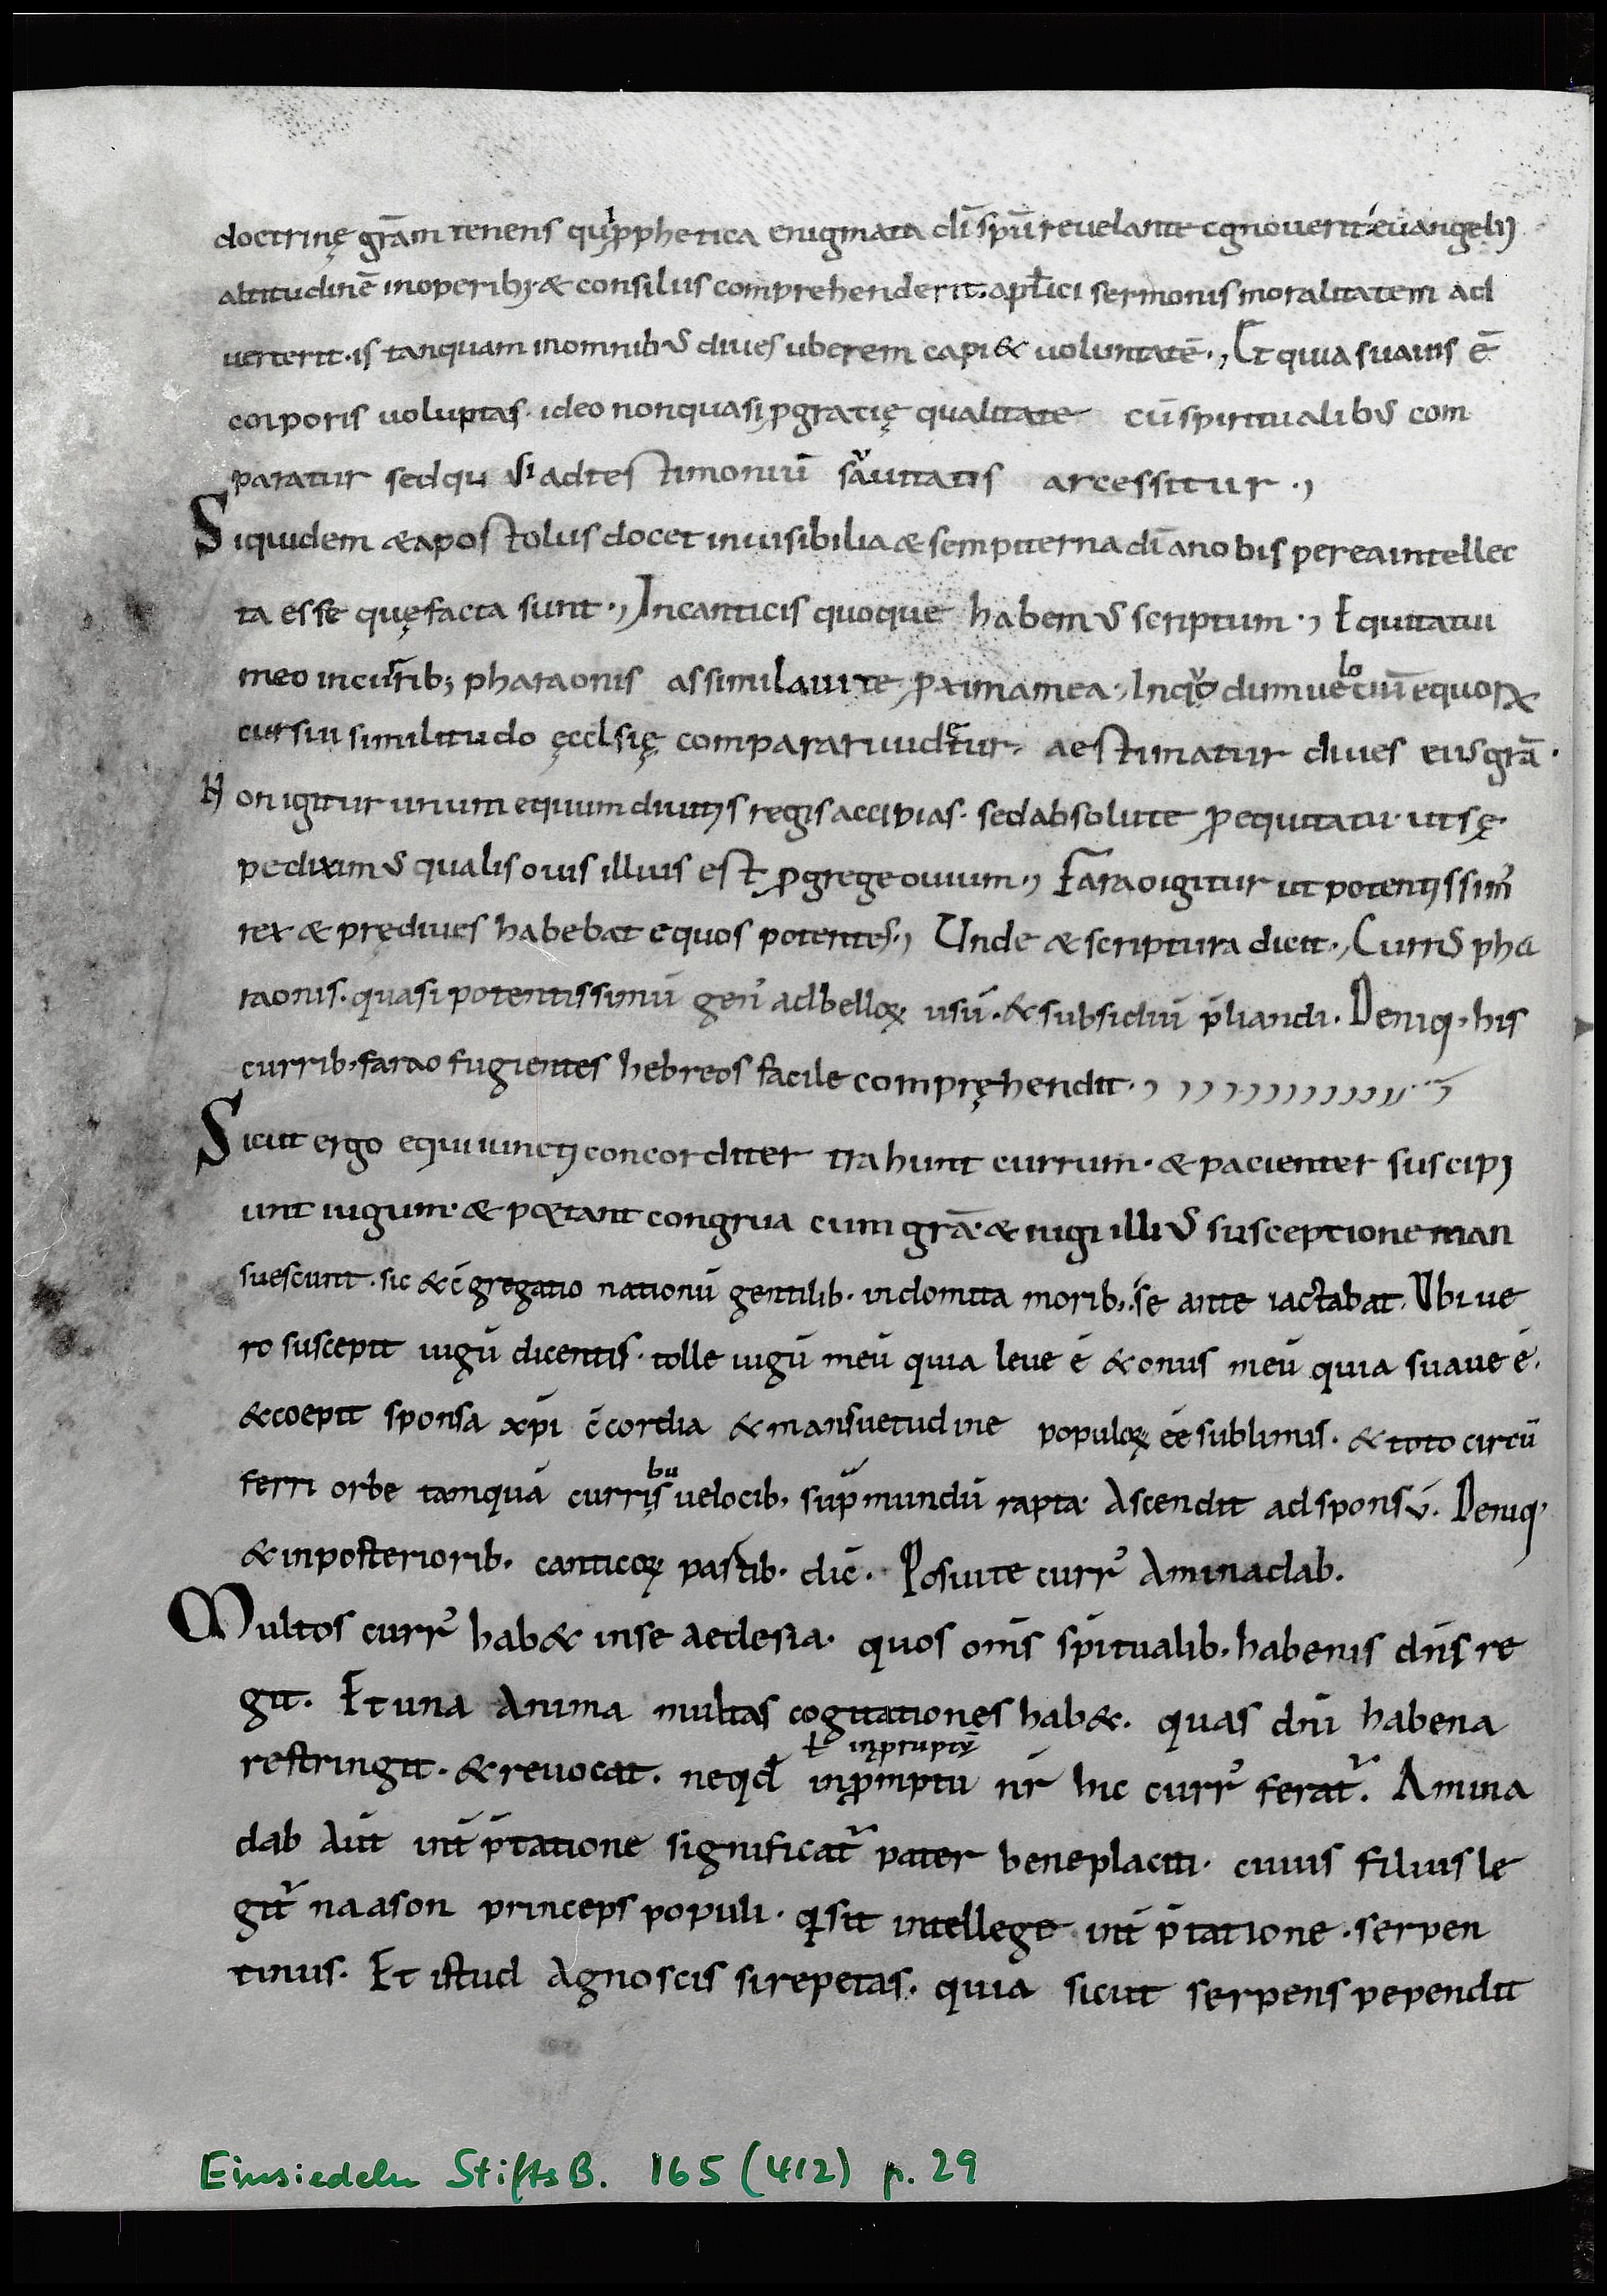 doctrinę grām tenens quipphetica enigmata dī spū revelante cgnoverit evangelii
altitudinē in operib; & consiliis comprehenderit. aplici sermonis moralitatem ad
verterit. is tanquam in omnibus dives uberem capi& voluntatē. Et quia suavis ē
corporis voluptas. ideo non quasi pgratię qualitate cū spiritualibus com
paratur sed quasi ad testimoniū suavitatis arcessitur.
Siquidem & apostolus docet invisibilia & sempiterna dī a nobis per ea intellec
ta esse quę facta sunt. In canticis quoque habemus scriptum. Equitatui
meo in currib; pharaonis assimilavi te pximamea. In quo dum velociū equoꝝ
cursui similitudo ęcclsię comparari videtur. aestimatur dives eius grā.
Non igitur unum equum divitis regis accipias. sed absolute p equitatu. ut sę
pe diximus qualis ovis illius est p grege ovium. Farao igitur ut potentissim᾿
rex & prędives habebat equos potentes. Unde & scriptura dicit. Currus pha
raonis. quasi potentissimū gen᾿ ad belloꝝ usū. & subsidiū p̄liandi. Deniq, his
currib, farao fugientes hebreos facile compręhendit.
Sicut ergo equi iuncti concorditer trahunt currum. & pacienter suscipi
unt iugum. & portant congrua cum grā. & iugi illius susceptione man
suescunt. sic & c̄gregatio nationū gentilib. indomita morib, se ante iactabat. Ubi ve
ro suscepit iugū dicentis. tolle iugū meū quia leve ē & onus meū quia suave ē.
& coepit sponsa xp̄i c̄cordia & mansuetudine populoꝝ ēē sublimis. & toto circū
ferri orbe tamquā curribus velocib, sup mundū rapta. Ascendit ad sponsū. Deniq,
& in posteriorib. canticoꝝ partib. dic̄. Posuit te curr᾿ Aminadab.
Multos curr᾿ hab& in se aeclesia. quos om̄s sp̄itualib, habenis dn̄s re
git. Et una Anima multas cogitationes hab&. quas dn̄i habena
restringit. & revocat. ne qđ inp̄mptu nr̄ hic curr᾿ ferat᾿. Amina
ł inp̄ruptū
dab Aūt int̄p̄tatione significat᾿ pater beneplaciti. cuius filius le
git᾿ naason princeps populi. q̄ sit intellege int̄p̄tatione. serpen
tinus. Et istud Agnoscis si repetas. quia sicut serpens pependit
Einsiedeln StiftsB. 165 (412) p. 29